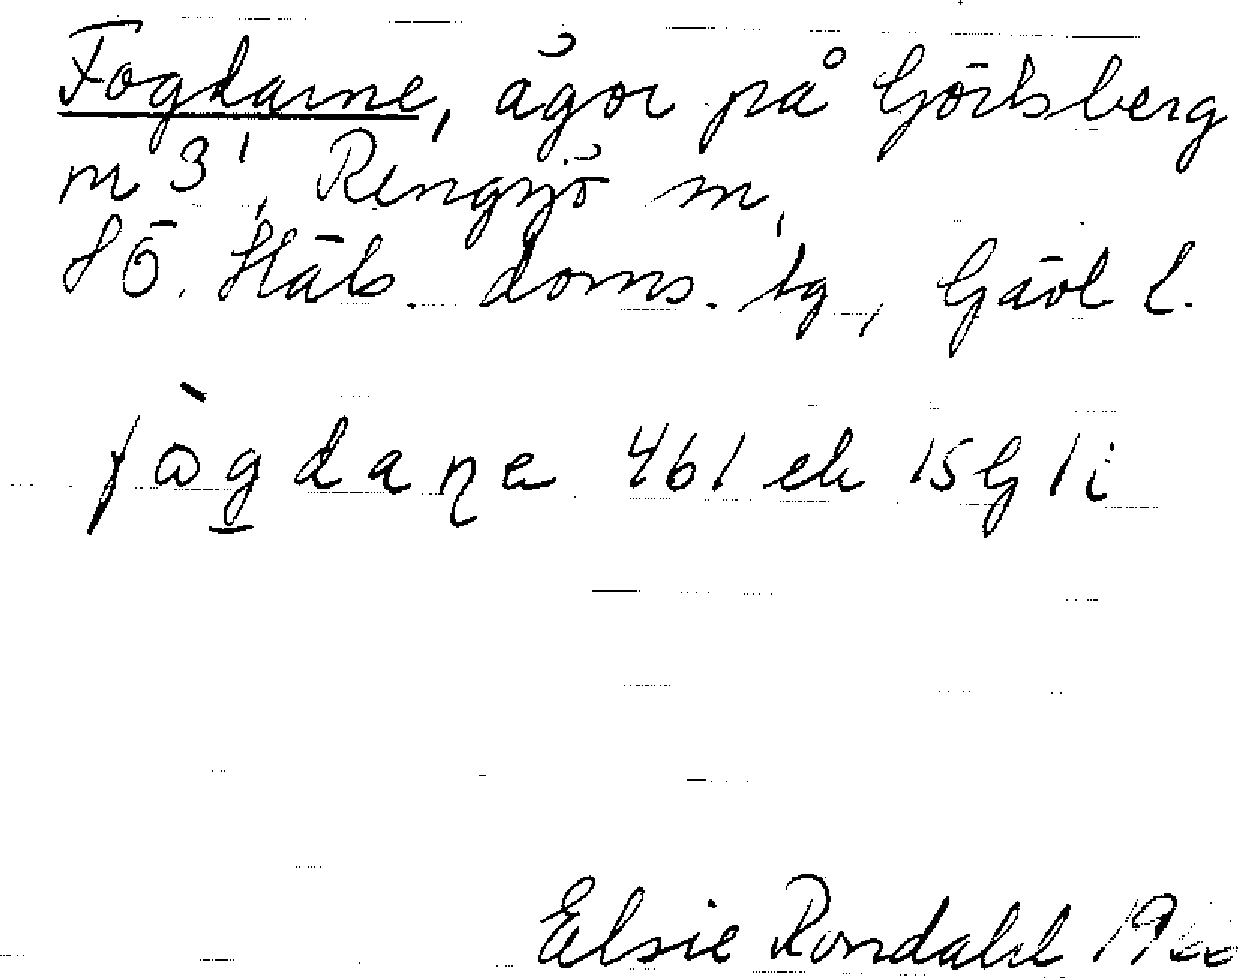 Fogdarne, ägor på Görtsberg
m 3¹, Rengsjö sn,
SÖ. Häls. doms. tg, Gävl l.
fògdaɳe 461 ek 15G1i
Elsie Rondahl 19